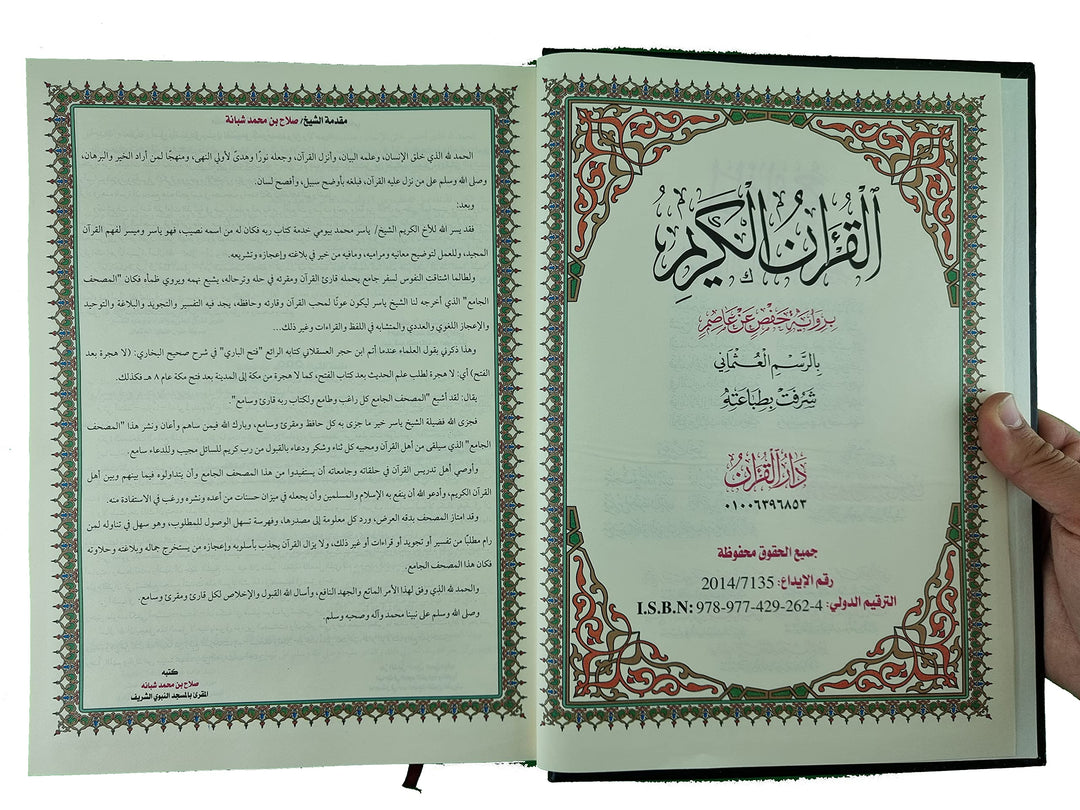 القرآن الكريم
برواية حفص عن عاصم
بالرسم العثماني
شرفت بطباعته
دار القرآن
٠١٠٠٦٣٩٦٨٥٣
جميع الحقوق محفوظة
رقم الإيداع: 2014/7135
الترقيم الدولي: I.S.B.N: 978-977-429-262-4
مقدمة الشيخ/ صلاح بن محمد شبانة
الحمد لله الذي خلق الإنسان، وعلمه البيان، وأنزل القرآن، وجعله نورًا وهدىً لأولي النهى، ومنهجًا لمن أراد الخير والبرهان،
وصلى الله وسلم على من نزل عليه القرآن، فبلغه بأوضح سبيل، وأفصح لسان.
وبعد:
فقد يسر الله للأخ الكريم الشيخ/ ياسر محمد بيومي خدمة كتاب ربه فكان له من اسمه نصيب، فهو ياسر وميسر لفهم القرآن
المجيد، وللعمل لتوضيح معانيه ومراميه، ومافيه من خير في بلاغته وإعجازه وتشريعه.
ولطالما اشتاقت النفوس لسفر جامع يحمله قارئ القرآن ومقرئه في حله وترحاله، يشبع نهمه ويروي ظمأه فكان "المصحف
الجامع" الذي أخرجه لنا الشيخ ياسر ليكون عونًا لمحب القرآن وقارئه وحافظه، يجد فيه التفسير والتجويد والبلاغة والتوحيد
والإعجاز اللغوي والعددي والمتشابه في اللفظ والقراءات وغير ذلك...
وهذا ذكرني بقول العلماء عندما أتم ابن حجر العسقلاني كتابه الرائع "فتح الباري" في شرح صحيح البخاري: (لا هجرة بعد
الفتح) أي: لا هجرة لطلب علم الحديث بعد كتاب الفتح، كما لا هجرة من مكة إلى المدينة بعد فتح مكة عام ٨ هـ فكذلك.
يقال: لقد أشبع "المصحف الجامع كل راغب وطامع ولكتاب ربه قارئ وسامع".
فجزى الله فضيلة الشيخ ياسر خير ما جزى به كل حافظ ومقرئ وسامع، وبارك الله فيمن ساهم وأعان ونشر هذا "المصحف
الجامع" الذي سيلقى من أهل القرآن ومحبيه كل ثناء وشكر ودعاء بالقبول من رب كريم للسائل مجيب وللدعاء سامع.
وأوصي أهل تدريس القرآن في حلقاته وجامعاته أن يستفيدوا من هذا المصحف الجامع وأن يتداولوه فيما بينهم وبين أهل
القرآن الكريم، وأدعو الله أن ينفع به الإسلام والمسلمين وأن يجعله في ميزان حسنات من أعده ونشره ورغب في الاستفادة منه.
وقد امتاز المصحف بدقه العرض، ورد كل معلومة إلى مصدرها، وفهرسة تسهل الوصول للمطلوب، وهو سهل في تناوله لمن
رام مطلبًا من تفسير أو تجويد أو قراءات أو غير ذلك، ولا يزال القرآن يجذب بأسلوبه وإعجازه من يستخرج جماله وبلاغته وحلاوته
فكان هذا المصحف الجامع.
والحمد لله الذي وفق لهذا الأمر الماتع والجهد النافع، وأسأل الله القبول والإخلاص لكل قارئ ومقرئ وسامع.
وصلى الله وسلم على نبينا محمد وآله وصحبه وسلم.
كتبه
صلاح بن محمد شبانه
المقرئ بالمسجد النبوي الشريف